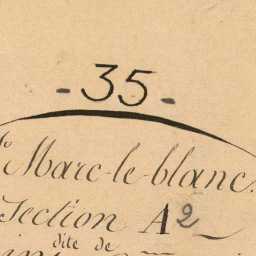 - 35 -
Marc-le-blanc.
Section A2
dite de